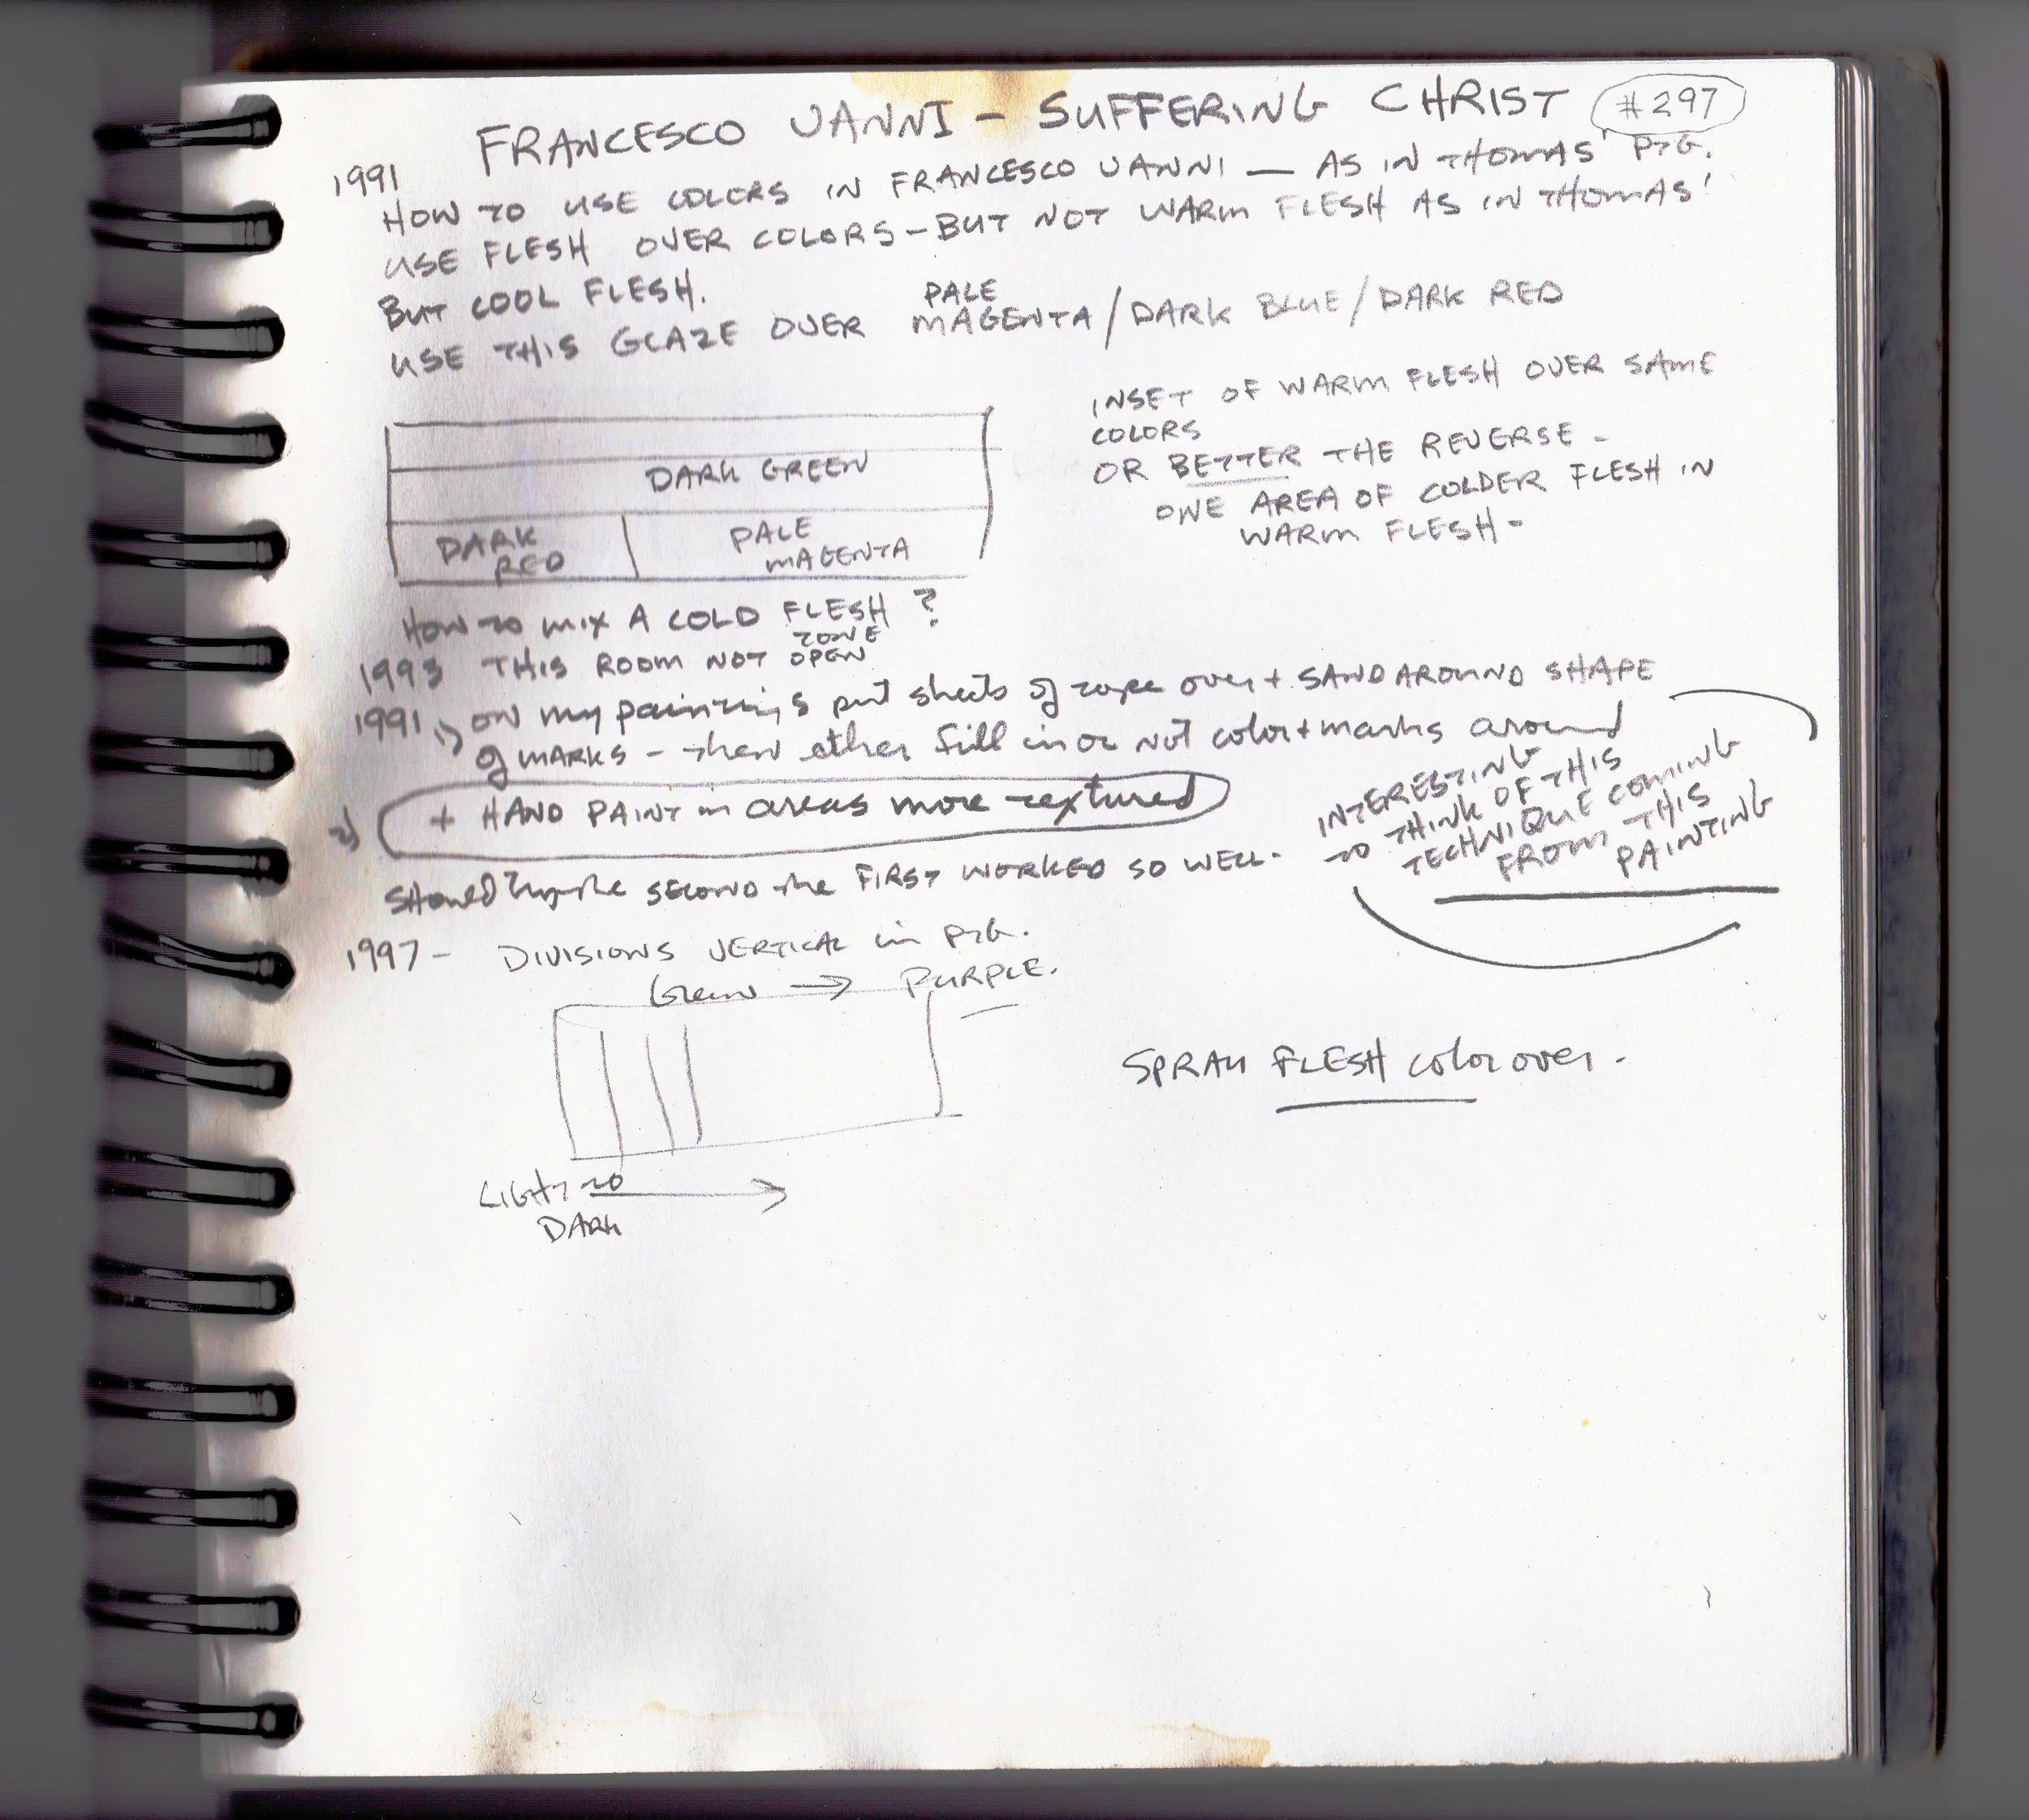 FRANCESCO VANNI – SUFFERING CHRIST #297
1991
HOW TO USE COLORS IN FRANCESCO VANNI — AS IN THOMAS' PTG.
USE FLESH OVER COLORS – BUT NOT WARM FLESH AS IN THOMAS'
BUT COOL FLESH.
USE THIS GLAZE OVER PALE MAGENTA / DARK BLUE / DARK RED
DARK GREEN
DARK RED
PALE MAGENTA
INSET OF WARM FLESH OVER SAME
COLORS
OR BETTER THE REVERSE –
ONE AREA OF COLDER FLESH IN
WARM FLESH –
HOW TO MIX A COLD FLESH TONE ?
1993 THIS ROOM NOT OPEN
1991 1) ON my paintings put sheets of tape over + SAND AROUND SHAPE
of MARKS – then either fill in or NOT color + marks around
2) + HAND PAINT in areas more textured
INTERESTING
TO THINK OF THIS
TECHNIQUE COMING
FROM THIS
PAINTING
Should try the SECOND the FIRST WORKED SO WELL.
1997 – DIVISIONS VERTICAL in PTG.
Green → PURPLE.
LIGHT TO
DARK
SPRAY FLESH color over.